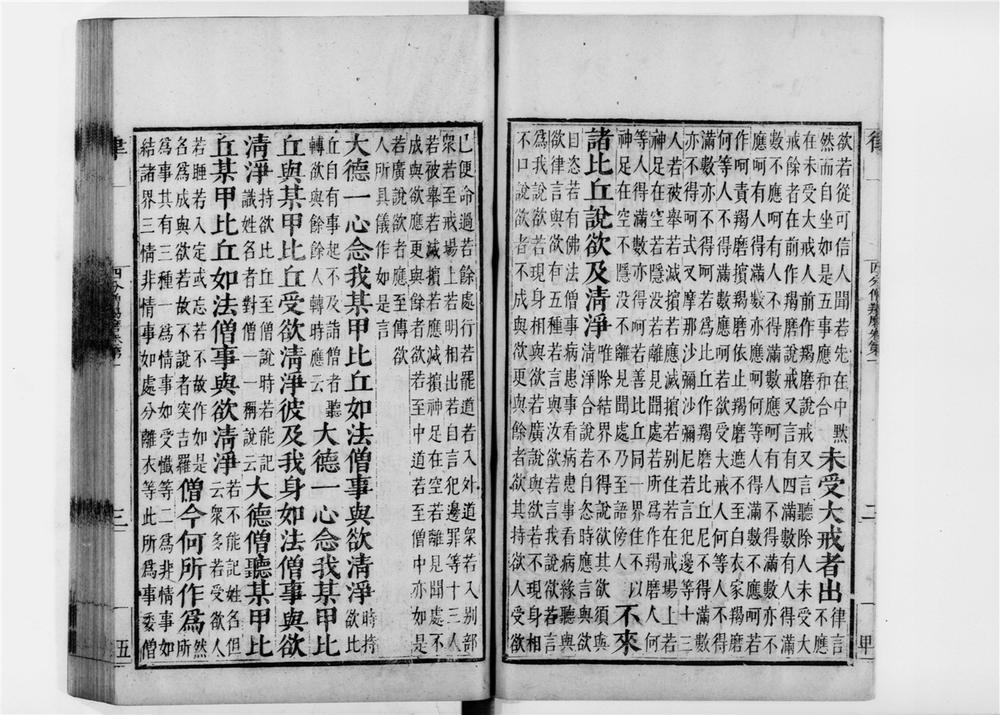 欲若從可信人聞若先在中默
然而自坐如是五事應和合
未受大戒者出
律言
不應
在未受大戒人前作羯磨說戒又言聽除人未受大
戒餘者在前作羯磨說戒又言有四滿數有人得滿
數不應呵有人不得滿數應呵有人不得滿數亦不
應呵有人得滿數亦應呵何等人得滿數不應呵若
作呵責羯磨擯羯磨依止羯磨遮不至白衣家羯磨
何等人不得滿數應呵若欲受大戒人何等人不得
滿數亦不得呵若為比丘作羯磨比丘尼不得滿數
亦不得呵式叉摩那沙彌沙彌尼若言犯邊等十三
人若被舉若滅擯若應滅擯若別住若在戒場上若
神足在空若隱沒若離見聞處若所為作羯磨人何
等人得滿數亦得呵若善比丘同一界住不以
神足在空不隱沒不離見聞處乃至語傍人
不來
諸比丘說欲及清淨
唯除結界不得說欲其欲須與
清淨合說若自恣時應言與欲
自恣若有佛法僧事病患事看病患事看病緣聽與
欲律言與欲有五種若言與汝欲若言我說欲若言
為我說欲若現身相與欲若廣說與欲若不現身相
不口說欲者不成與欲更與餘者欲其持欲人受欲
律
四分僧羯磨卷第一
二
甲
已便命過若餘處行若罷道若入外道眾若入別部
眾若至戒場上若明相出若自言犯邊罪等十三人
若被舉若滅擯若應滅擯神足在空若離見聞處不
成與欲應更與餘者欲若至中道若至僧中亦如是
若廣說欲者應至傳欲
人所具儀作如是言
大德一心念我某甲比丘如法僧事與欲清淨
時持
欲比
丘自有事起不及詣僧者聽
轉欲與餘餘人轉時應云
大德一心念我某甲比
丘與某甲比丘受欲清淨彼及我身如法僧事與欲
清淨
持欲比丘至僧說時若能記
識姓名者對僧一一稱說云
大德僧聽某甲比
丘某甲比丘如法僧事與欲清淨
若不能記姓名但
云眾多若受欲人
若睡若入定或忘若不故作如是
名為成與欲若故不說者突吉羅
僧今何所作為
然
所
為事其有三種一為情事如受懺等二為非情事如
結諸界三情非情事如處分離衣等此所為事委僧
律
四分僧羯磨卷第一
三
五